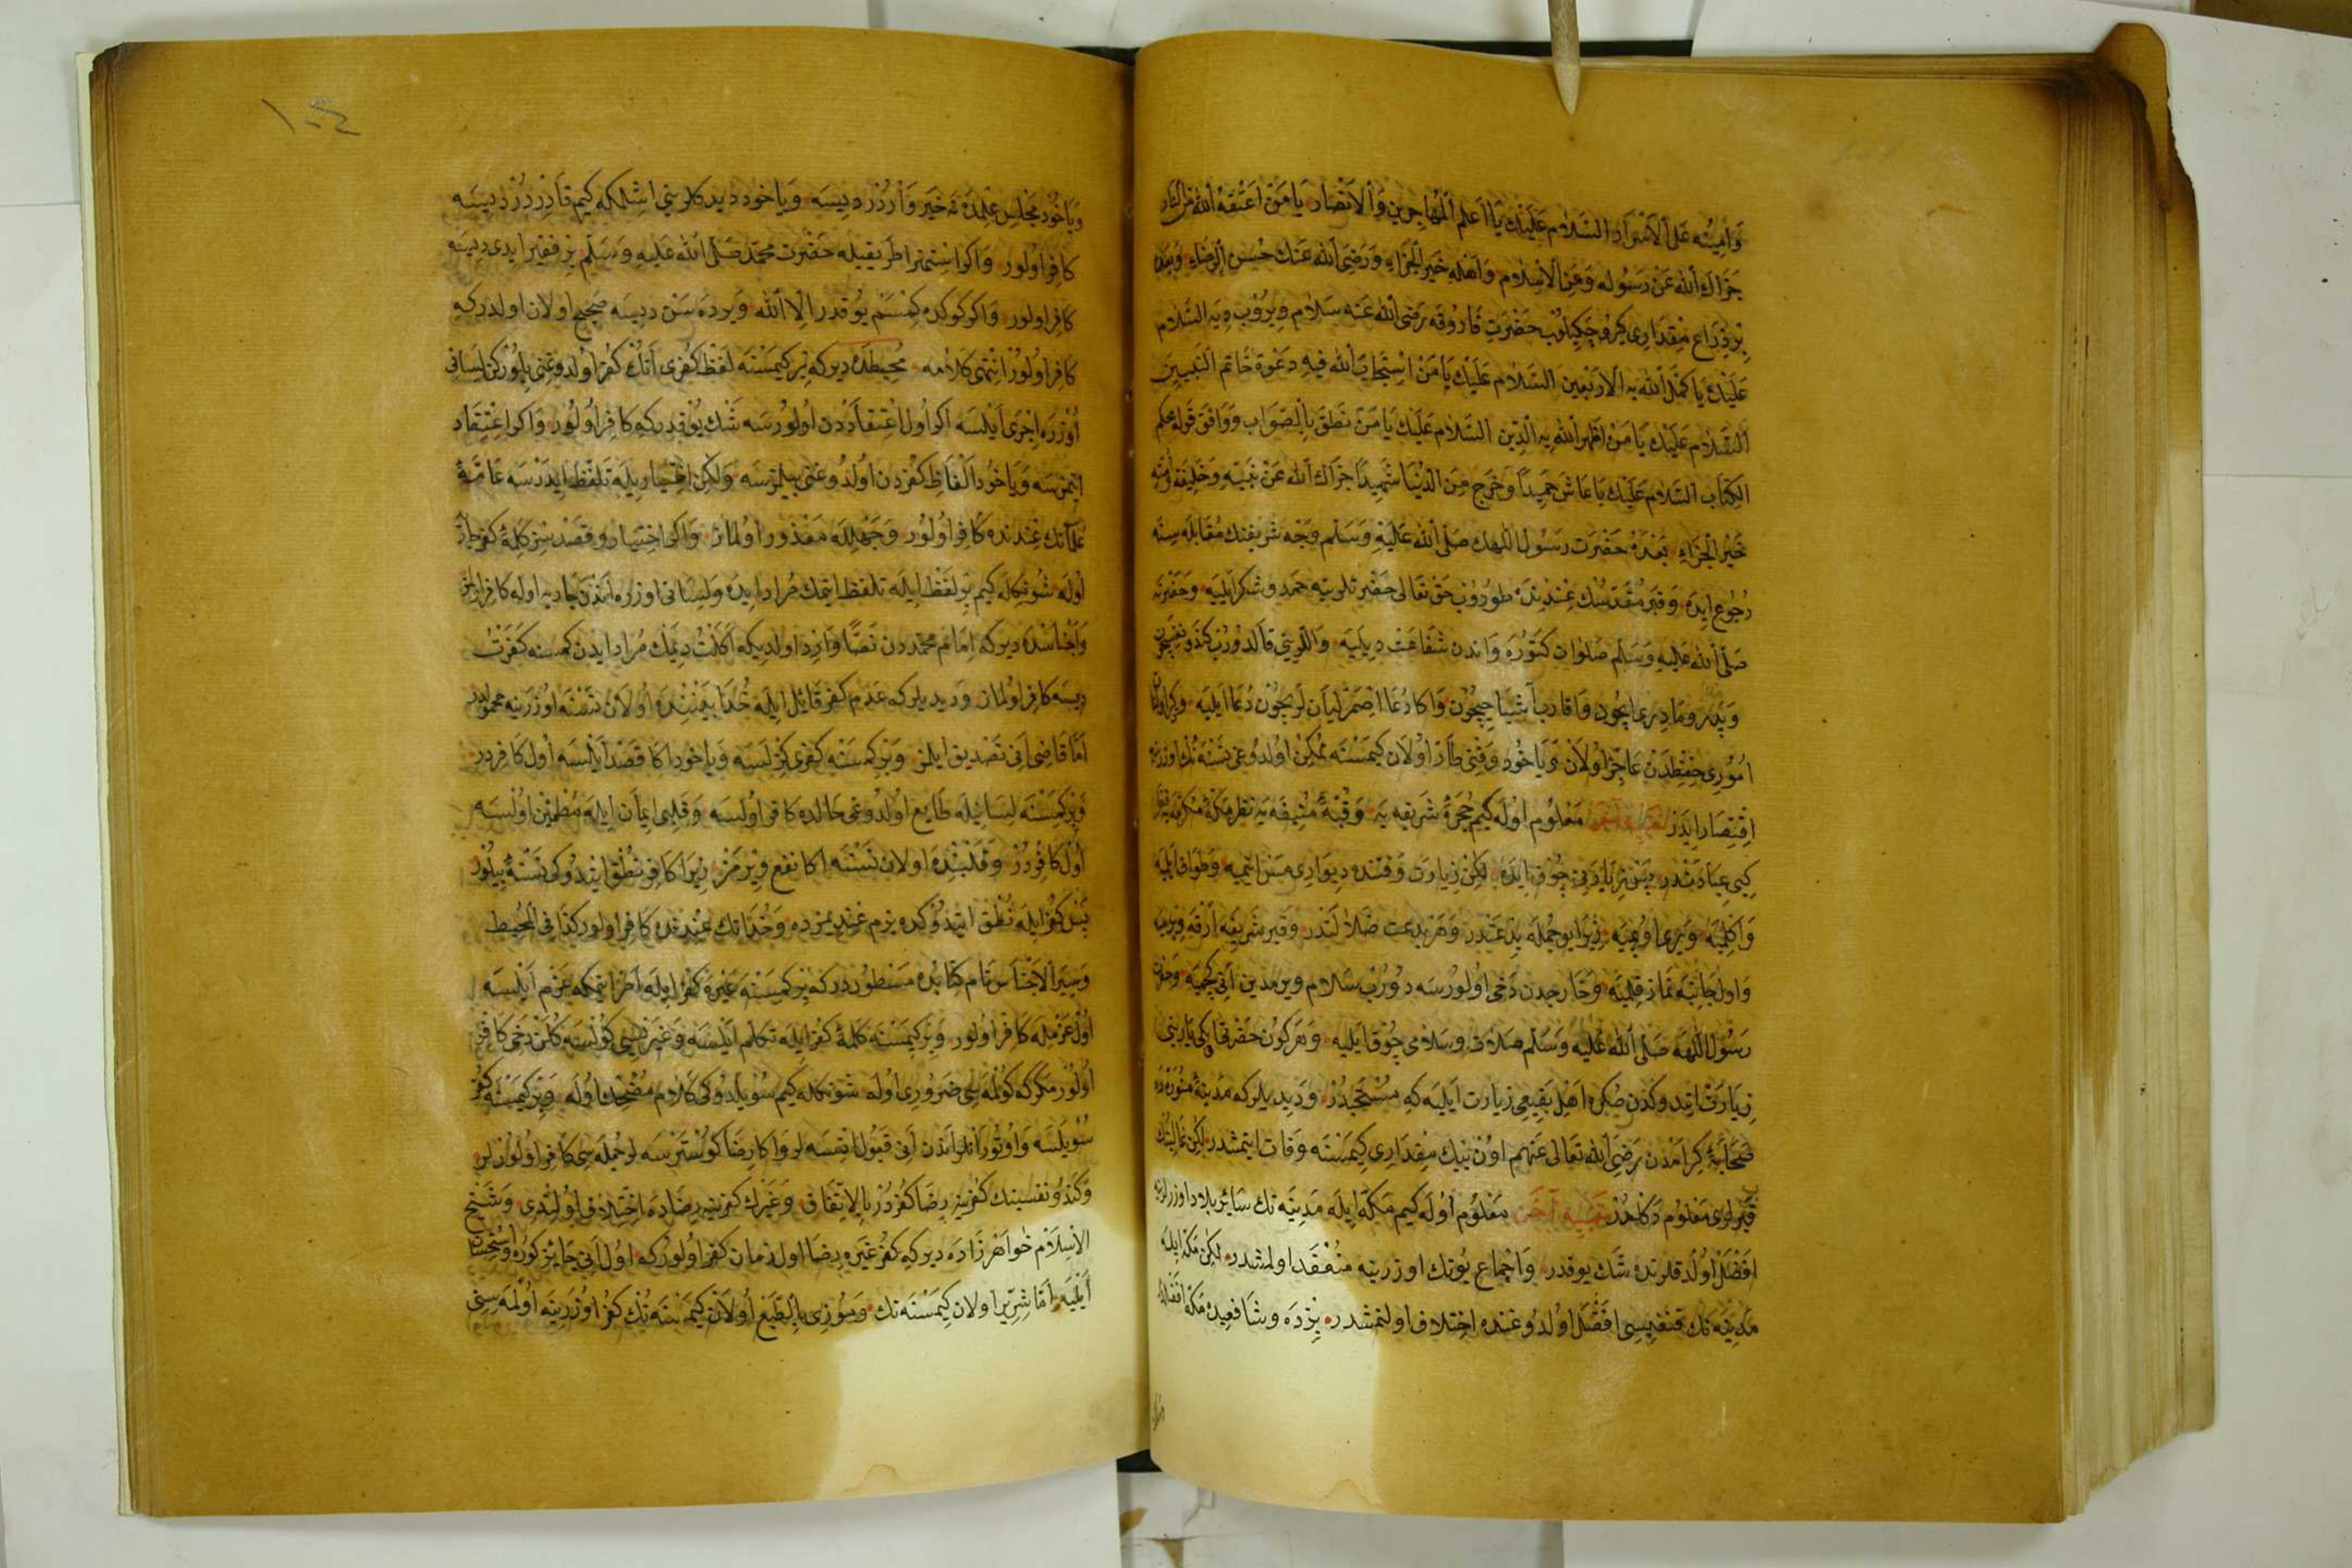 وَامِينُه عَلَى الْاَسْرَارِ السَّلَام عَلَيْكَ يَا اَعلم الْمُهَاجِرِينَ وَالْاَنْصَارِ يَا مَنْ اَعْتَقَهُ اللّٰه مِنَ النَّارِ
جَزَاكَ اللّٰه عَنْ رَسُولِه وَعَنِ الْاِسْلَام وَاَهْلِهِ خَيْر الْجَزَاءِ وَرَضِىَ اللّٰه عَنْكَ حُسْن الرِّضَاءِ وبعده
بِرْ ذِرَاع مِقْدَارِى كِرُو چَكِيلُوبْ حَضْرَتِ فَارُوقَه رَضِىَ اللّٰه عَنْه سَلَام وِيرُوبْ دِيَه السَّلَام
عَلَيْكَ يَا كَمَّلَ اللّٰه بِهِ الْاَرْبَعِينَ السَّلَام عَلَيْكَ يَا مَنْ اسْتَجَابَ اللّٰه فِيهِ دَعْوَة خَاتَم النَّبِيِّينَ
السَّلَام عَلَيْكَ يَا مَنْ اَظْهَرَ اللّٰه بِهِ الدِّينَ السَّلَام عَلَيْكَ يَا مَنْ نَطَقَ بِالصَّوَابِ وَوَافَقَ قَوْله محكم
الْكِتَابِ السَّلَام عَلَيْكَ يَا عَاشَ حَمِيداً وَخَرَجَ مِنَ الدُّنْيَا شَهِيداً جَزَاكَ اللّٰه عَنْ نَبِيِّه وَخَلِيفَته وامته
خَيْر الْجَزَاءِ بَعْدَهُ حَضْرَت رَسُول اللّٰهك صَلَّى اللّٰه عَلَيْهِ وَسَلَّم وَجْه شَرِيفنك مُقَابَلَه سِنَه
رُجُوع اِيدَه وَقَبْر مُقَدَّسك عِنْدِنْدَه طُورُوبْ حَقْ تَعَالَى حَضْرتلرينه حَمْد وَشُكْر اَيْلِيَه وَحَضْرَته
صَلَّى اللّٰه عَلَيْهِ وَسَلَّم صَلَوَات كَتُورَه وَاندن شَفَاعَت دِيلِيَه وَاللّرينى قَالدُورُب كندو نفسيچون
وَپدر وَمَادرى ايچُون وَاقاربا اَشِيا ايچُون وَاكا دُعَا اصْمَرْليان لر ايچُون دُعَا اَيْلِيَه
اُمُورِى حِفْظدَنْ عَاجِز اُولَانْ وَيَاخُود وَقْتى طَار اُولَان كِيمْسَنَه مُمْكِن اُولدُوغى نَسْنَه نُكْ اوزرينه
اِقْتِصَار اِيدَر مَعْلُوم اوله كِيم حُجْرَهٔ شَرِيفه يَه وَقُبَّهٔ مُنِيفَه يَه نظر مَكّهٔ مكرّمه يه نظر
كِبى عِبَادَتْدر پَسْ نظرى چُوق اِيدَه لكِنْ زِيَارَت وَقْتنده دِيوَارى مَسّ ايتميه وَطَوَاف ايلميه
وَاكِلميَه وَيَرى اُوپميه زِيرَا بُو جُمْلَه بِدْعَتدر وَهَر بِدْعَت ضَلَالَتْدر وَقَبر شَرِيفه اَرْقَه ويرميه
وَاول جَانِبه نَمَاز قِلميَه وَخَارِجدن دَخى اُولُورسَه دُورُب سَلَام ويرمدين اَنى كچميه
رَسُول اللّٰهَه صَلَّى اللّٰه عَلَيْه وَسَلَّم صَلَات وَسَلَامى چُوق ايليه وَهَر كُون حَضْرتى وايكى يارينى
زِيَارَت ايتدوكدن صكره اَهْل بَقِيعى زِيَارت اَيليَه كه مُسْتَحَبدُر وَديديلر كه مَدِينَهٔ مُنوّره ده
صَحَابَهٔ كِرَامدن رَضِىَ اللّٰه تَعَالَى عَنهم اون بيك مِقدَارى كيمسنه وَفات ايتمشدر لكِن غالبنك
قَبرلرى مَعْلُوم دَكلدُر تَنْبِيه آخَر مَعْلُوم اوله كيم مَكّه ايله مَدِينَه نك سَائر بلاد اوزرلرينه
افضَل اُولدقلرنده شَك يوقدر وَاجماع بُونك اوزرينه مُنْعَقد اولمشدر لكِن مكه ايله
مَدِينه نك قنغيسى افضَل اولدوغنده اختلاف اولنمشدر بزده وشافعيده مَكّه افضَلدر
١٠٤
وَيَاخُود مَجْلِس عِلْمدَه نه خَير وَاردُر ديسه وَيَاخُود ديدكلرينى اشلمكه كيم قَادِر دُر ديسَه
كَافر اولور وَاكر استهزا طَرِيقيله حَضْرت محمّد صَلَّى اللّٰه عَلَيه وَسَلّم بر فقير ايدى ديسه
كَافر اولور وَاكر كوكده كِمْسَم يُوقدر اِلّا اللّٰه وَيرده سَن ديسه صَحيح اولان اولدر كه
كَافر اولُور انتهى كلامه مُحيطده دير كه بر كيمسنه لَفظ كُفرى اَنُك كُفر اولدوغنى بلور كن لسانى
اوزره اِجرى اَيلسه اكر اُول اِعتِقاددن اُولُورسَه شَك يُوقدر كه كَافر اُولُور وَاكر اعتِقاد
ايتمزسَه وَيَاخُود اَلفَاظ كفردن اُولدوغنى بيلمزسه ولكن اختيار يله تلفظ ايدرسه عَامّهٔ
عُلَمَانك عِندنده كَافر اولُور وَجَهلله مَعذور اولماز وَاكر اختيار وقَصدسِز كَلِمهٔ كفر جارى
اوله شُونكله كيم بر لفظ ايله تلفظ ايتمك مُراد ايده وَلسانى اوزره اندن جاريه اوله كافر اولمز
وَاَجناسده دير كه اِمَام محمّددن نَصًّا وَارد اولديكه اَكلتُ ديمَك مُراد ايدن كمسنه كَفَرتُ
ديسه كافر اولماز وَديديلر كه عَدَم كفر قَائل ايله خُدَا بينِنده اُولان نسنه اوزرينه محمولدر
اَمّا قَاضى اَنى تَصديق ايلمز وَبر كمسنه كفرى كِزلسه وَيَاخود اكا قَصد ايلسه اول كَافردر
وَبر كمسنه لِسَانيله طَايع اولدوغى حَالده كافر اولسه وَقلبى ايمان ايله مُطمئن اولسه
اُول كافردر وَقلبنده اولان نسنه اكا نفع ويرمز زيرا كافر نُطق ايتدوكى نَسنه بيلنور
پَس كفر ايله نُطق ايتدوكده بزم عِندِيمزده وَخدانك عِندنده كَافر اولور كذا فى المُحيط
وَسِيَر الاَجناس نَام كتابده مَسطوردر كه بر كمسنه غيره كفر ايله امر ايتمكه عَزم ايلسه
اُول عَزمله كافر اولور وَبر كيمسنه كلمهٔ كفر ايله تكلم ايلسه وَغير كيمسه كُولسه كُلن دخى كافر
اولُور مكر كه كولمسى ضَرورى اوله شونكله كيم سُويلدوكى كلام مُضحك اوله وَبر كيمسنه كفر
سُويلسه وَاوتُورانلر اندن اَنى قبول اتسه لر وَاكا رضا كُوسترسه لر جُمله سى كافر اولورلر
وَكندو نفسينك كفرينه رِضَا كُفردُر بِالاِتِّفَاق وَغيرك كفرينه رضاده اختِلاف اولندى وَشَيخ
الاِسلَام خواهرزاده دير كه كفر غَيره رِضَا اول زمان كفر اولور كه اول اَنى جَائز كوره وَاستحسان
اَيليه اَمّا شِرّير اولان كيمسنه نك وَموذى بِالطَّبع اُولان كيمسنه نُك كفر اوزرينه اولمَه سنى